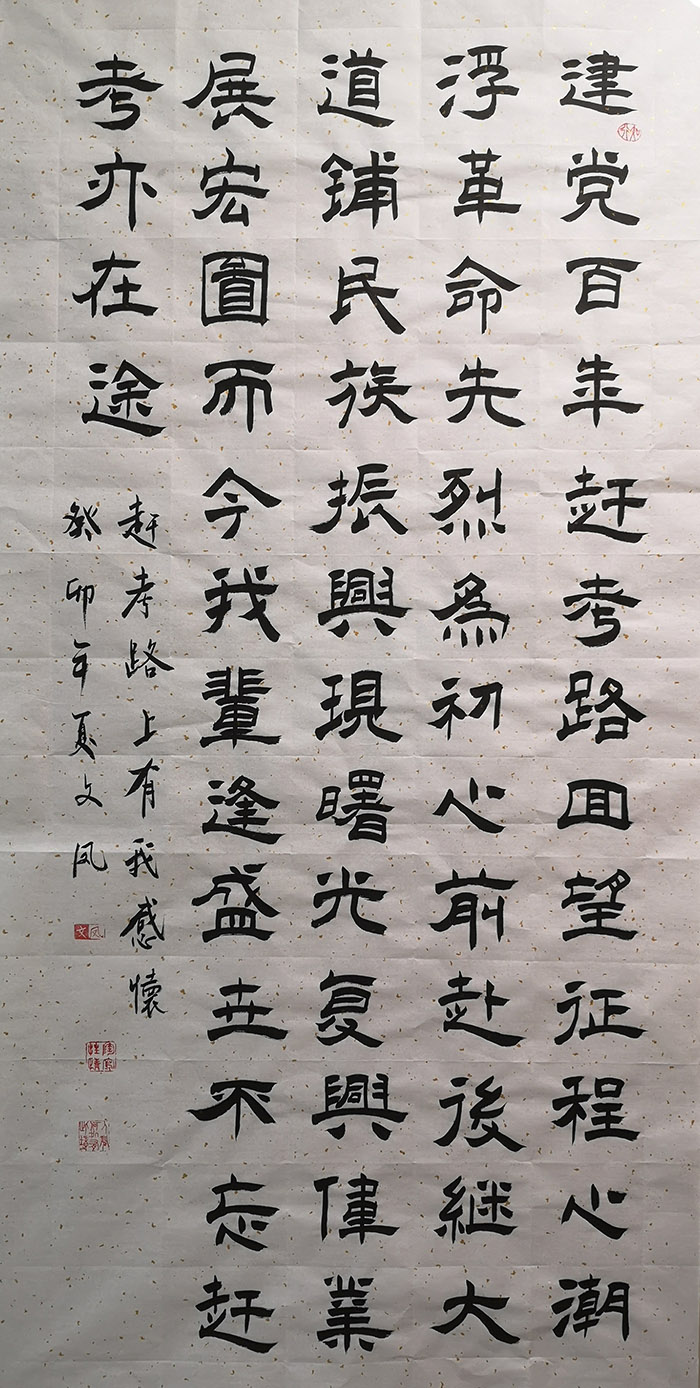 建党百年赶考路回望征程心潮
浮革命先烈為初心前赴後继大
道铺民族振興現曙光复興偉業
展宏圖而今我輩逢盛世不忘赶
考亦在途
赶考路上有我感懷
癸卯年夏文凤